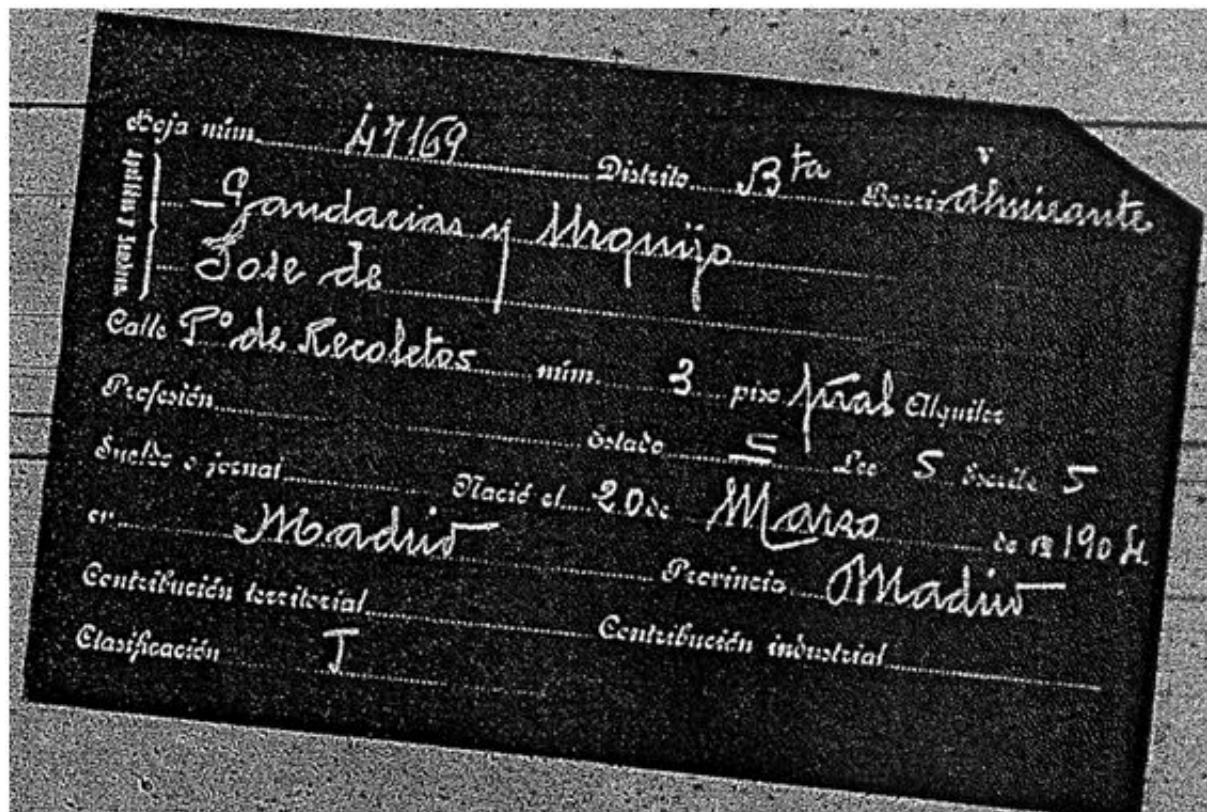 Hoja núm. 47169 Distrito Bta Barrio Almirante
Apellidos y Nombre
Gandarias y Urquijo
Jose de
Calle Pº de Recoletos núm. 3 piso pral Alquiler
Profesión Estado S Lee S Escribe S
Sueldo o jornal Nació el 20 de Marzo de 1904
en Madrid Provincia Madrid
Contribución territorial Contribución industrial
Clasificación J